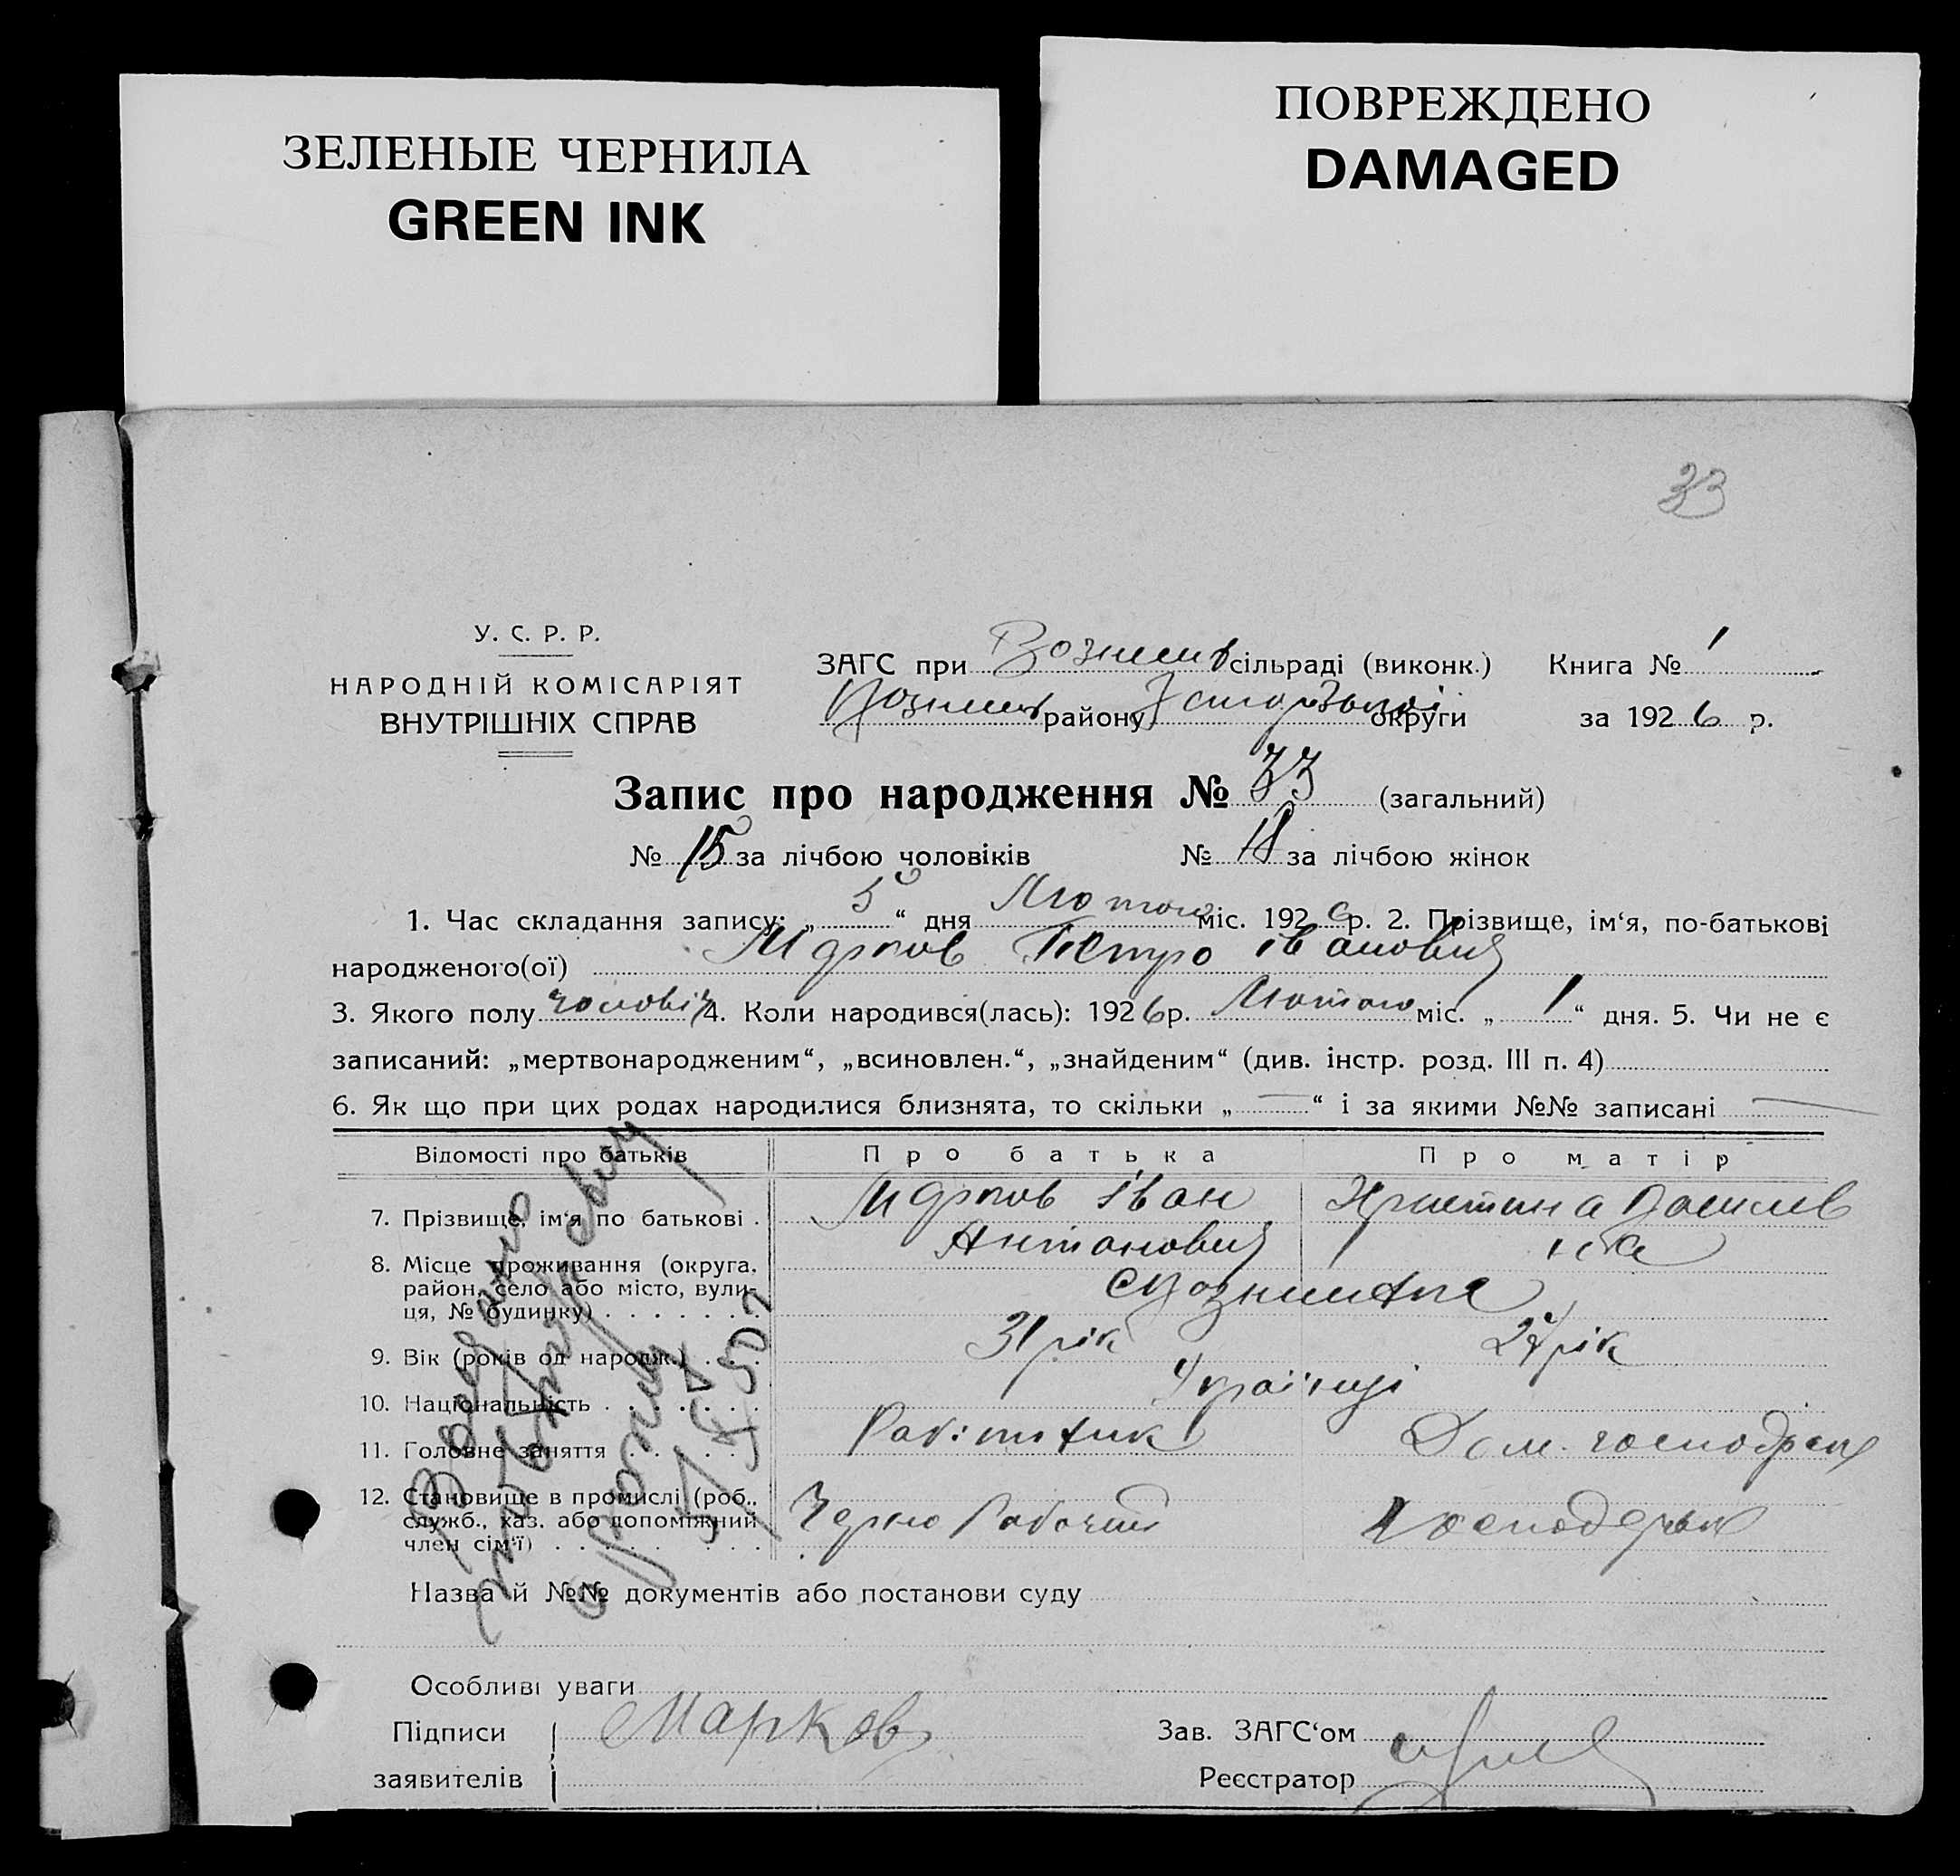 ЗЕЛЕНЫЕ ЧЕРНИЛА
GREEN INK
ПОВРЕЖДЕНО
DAMAGED
33
У. С. Р. Р.
НАРОДНІЙ КОМІСАРІЯТ
ВНУТРІШНІХ СПРАВ
ЗАГС при сільраді (виконк.) Книга № 1
району округи за 1926 р.
Запис про народження № 33 (загальний)
№ 15 за лічбою чоловіків № 18 за лічбою жінок
1. Час складання запису: „ 5 “ дня Лютого міс. 1926 р. 2. Прізвище, ім‘я, по-батькові
народженого(ої) Марков Петро Іванович
3. Якого полу чоловіч 4. Коли народився(лась): 1926 р. Лютого міс. „ 1 “ дня. 5. Чи не є
записаний: „мертвонародженим“, „всиновлен.“, „знайденим“ (див. інстр. розд. III п. 4)
6. Як що при цих родах народилися близнята, то скільки „ — “ і за якими №№ записані —
Відомості про батьків Про батька Про матір
7. Прізвище, ім‘я по батькові . Марков Іван Антонович Христина Василівна
8. Місце проживання (округа,
район, село або місто, вули-
ця, № будинку) . . . . . . .
9. Вік (років од народж.) . . . 31 рік 24 рік
10. Національність . . . . . . . Українці
11. Головне заняття . . . . . Робітник Дом. господар
12. Становище в промислі (роб.,
служб., хаз. або допоміжний
член сім‘ї) . . . . . . . . Черно Рабочий
Назва й №№ документів або постанови суду
Особливі уваги
Підписи Марков Зав. ЗАГС‘ом
заявителів Реєстратор